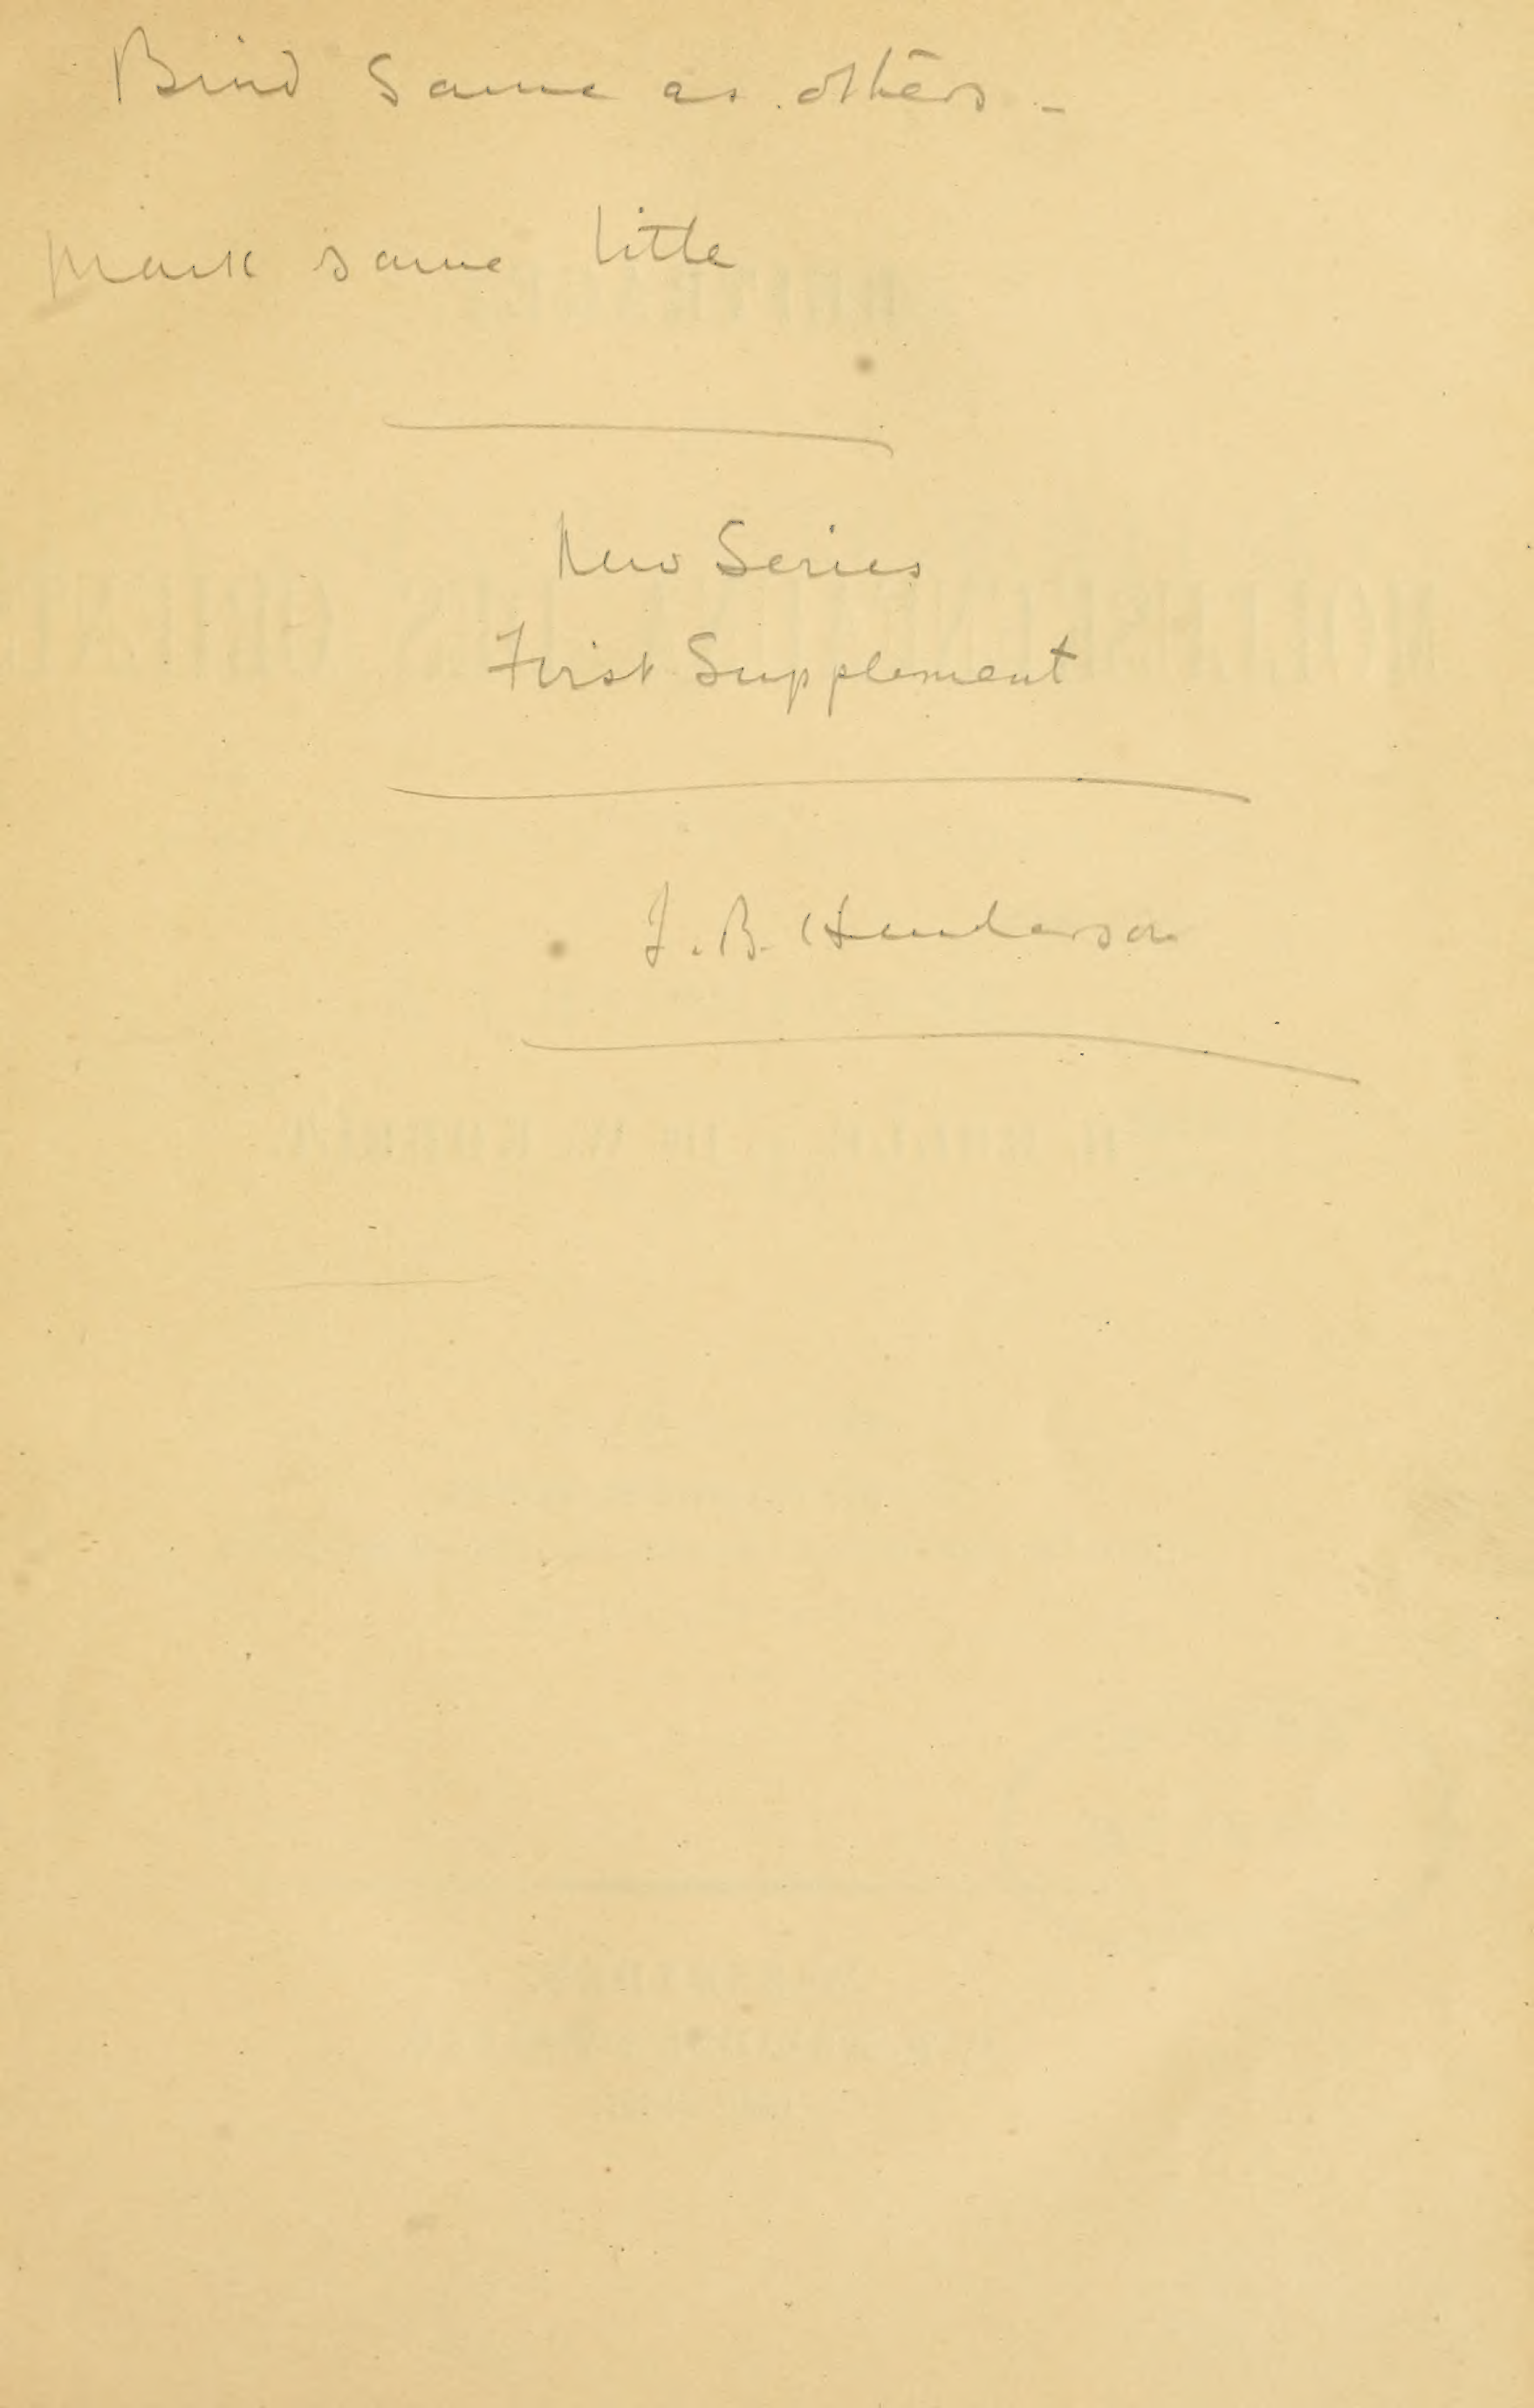 Bind same as others -
Mark same title
New Series
First Supplement
J. B. Henderson